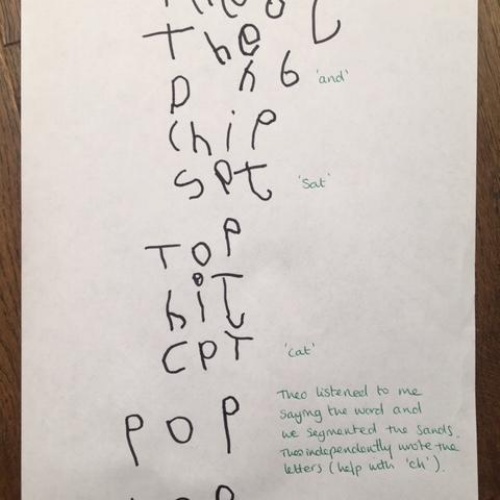 The
p h 6 'and'
chip
spt 'sat'
TOP
hiT
CPT 'cat'
Theo listened to me
saying the word and
we segmented the sands.
Theo independently wrote the
letters (help with 'ch').
POP